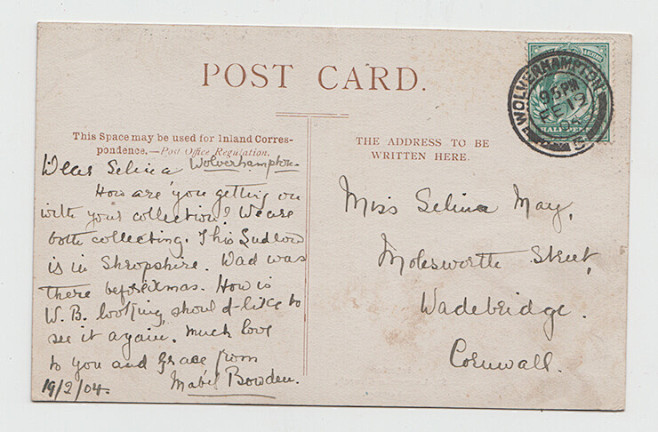 POST CARD.
This Space may be used for Inland Corres-
pondence.—Post Office Regulation.
THE ADDRESS TO BE
WRITTEN HERE.
WOLVERHAMPTON
PM
FE 19
HALF PENNY
Dear Selina Wolverhampton.
How are you getting on
with your collection? We are
both collecting. This Ludlow
is in Shropshire. Dad was
there before Xmas. How is
W.B. looking, should like to
see it again. Much love
to you and Grace from
Mabel Bowden.
19/2/04.
Miss Selina May,
Molesworth Street,
Wadebridge.
Cornwall.